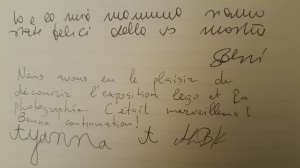 Io e la mia mamma siamo
state felici della vs mostra
Nous avons eu le plaisir de
découvrir l'exposition lego et la
photographie. C'était merveilleux!
Bonne continuation!
et